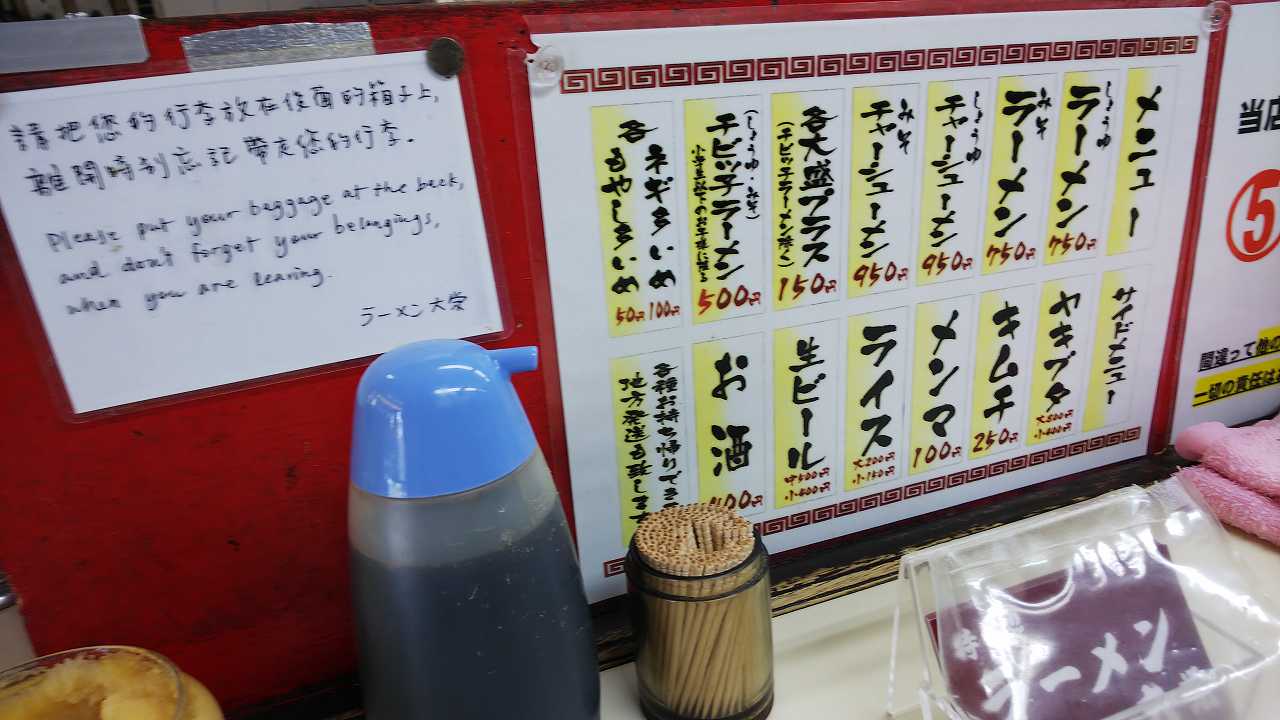 請把您的行李放在後面的箱子上,
離開時別忘記帶走您的行李.
Please put your baggage at the back,
and don't forget your belongings,
when you are leaving.
ラーメン 大栄
メニュー
しょうゆ
ラーメン
750円
みそ
ラーメン
750円
しょうゆ
チャーシューメン
950円
みそ
チャーシューメン
950円
各大盛プラス
(チビッ子ラーメン除く)
150円
(しょうゆ・みそ)
チビッ子ラーメン
小学生以下のお子様に限る
500円
各
ネギ多いめ
100円
もやし多いめ
50円
サイドメニュー
ヤキブタ
大800円
小400円
キムチ
250円
メンマ
100円
ライス
大200円
小150円
生ビール
中500円
小400円
お酒
400円
各種お持ち帰りでき
地方発送も致します
当店
5
間違って他の
一切の責任は
ラーメン